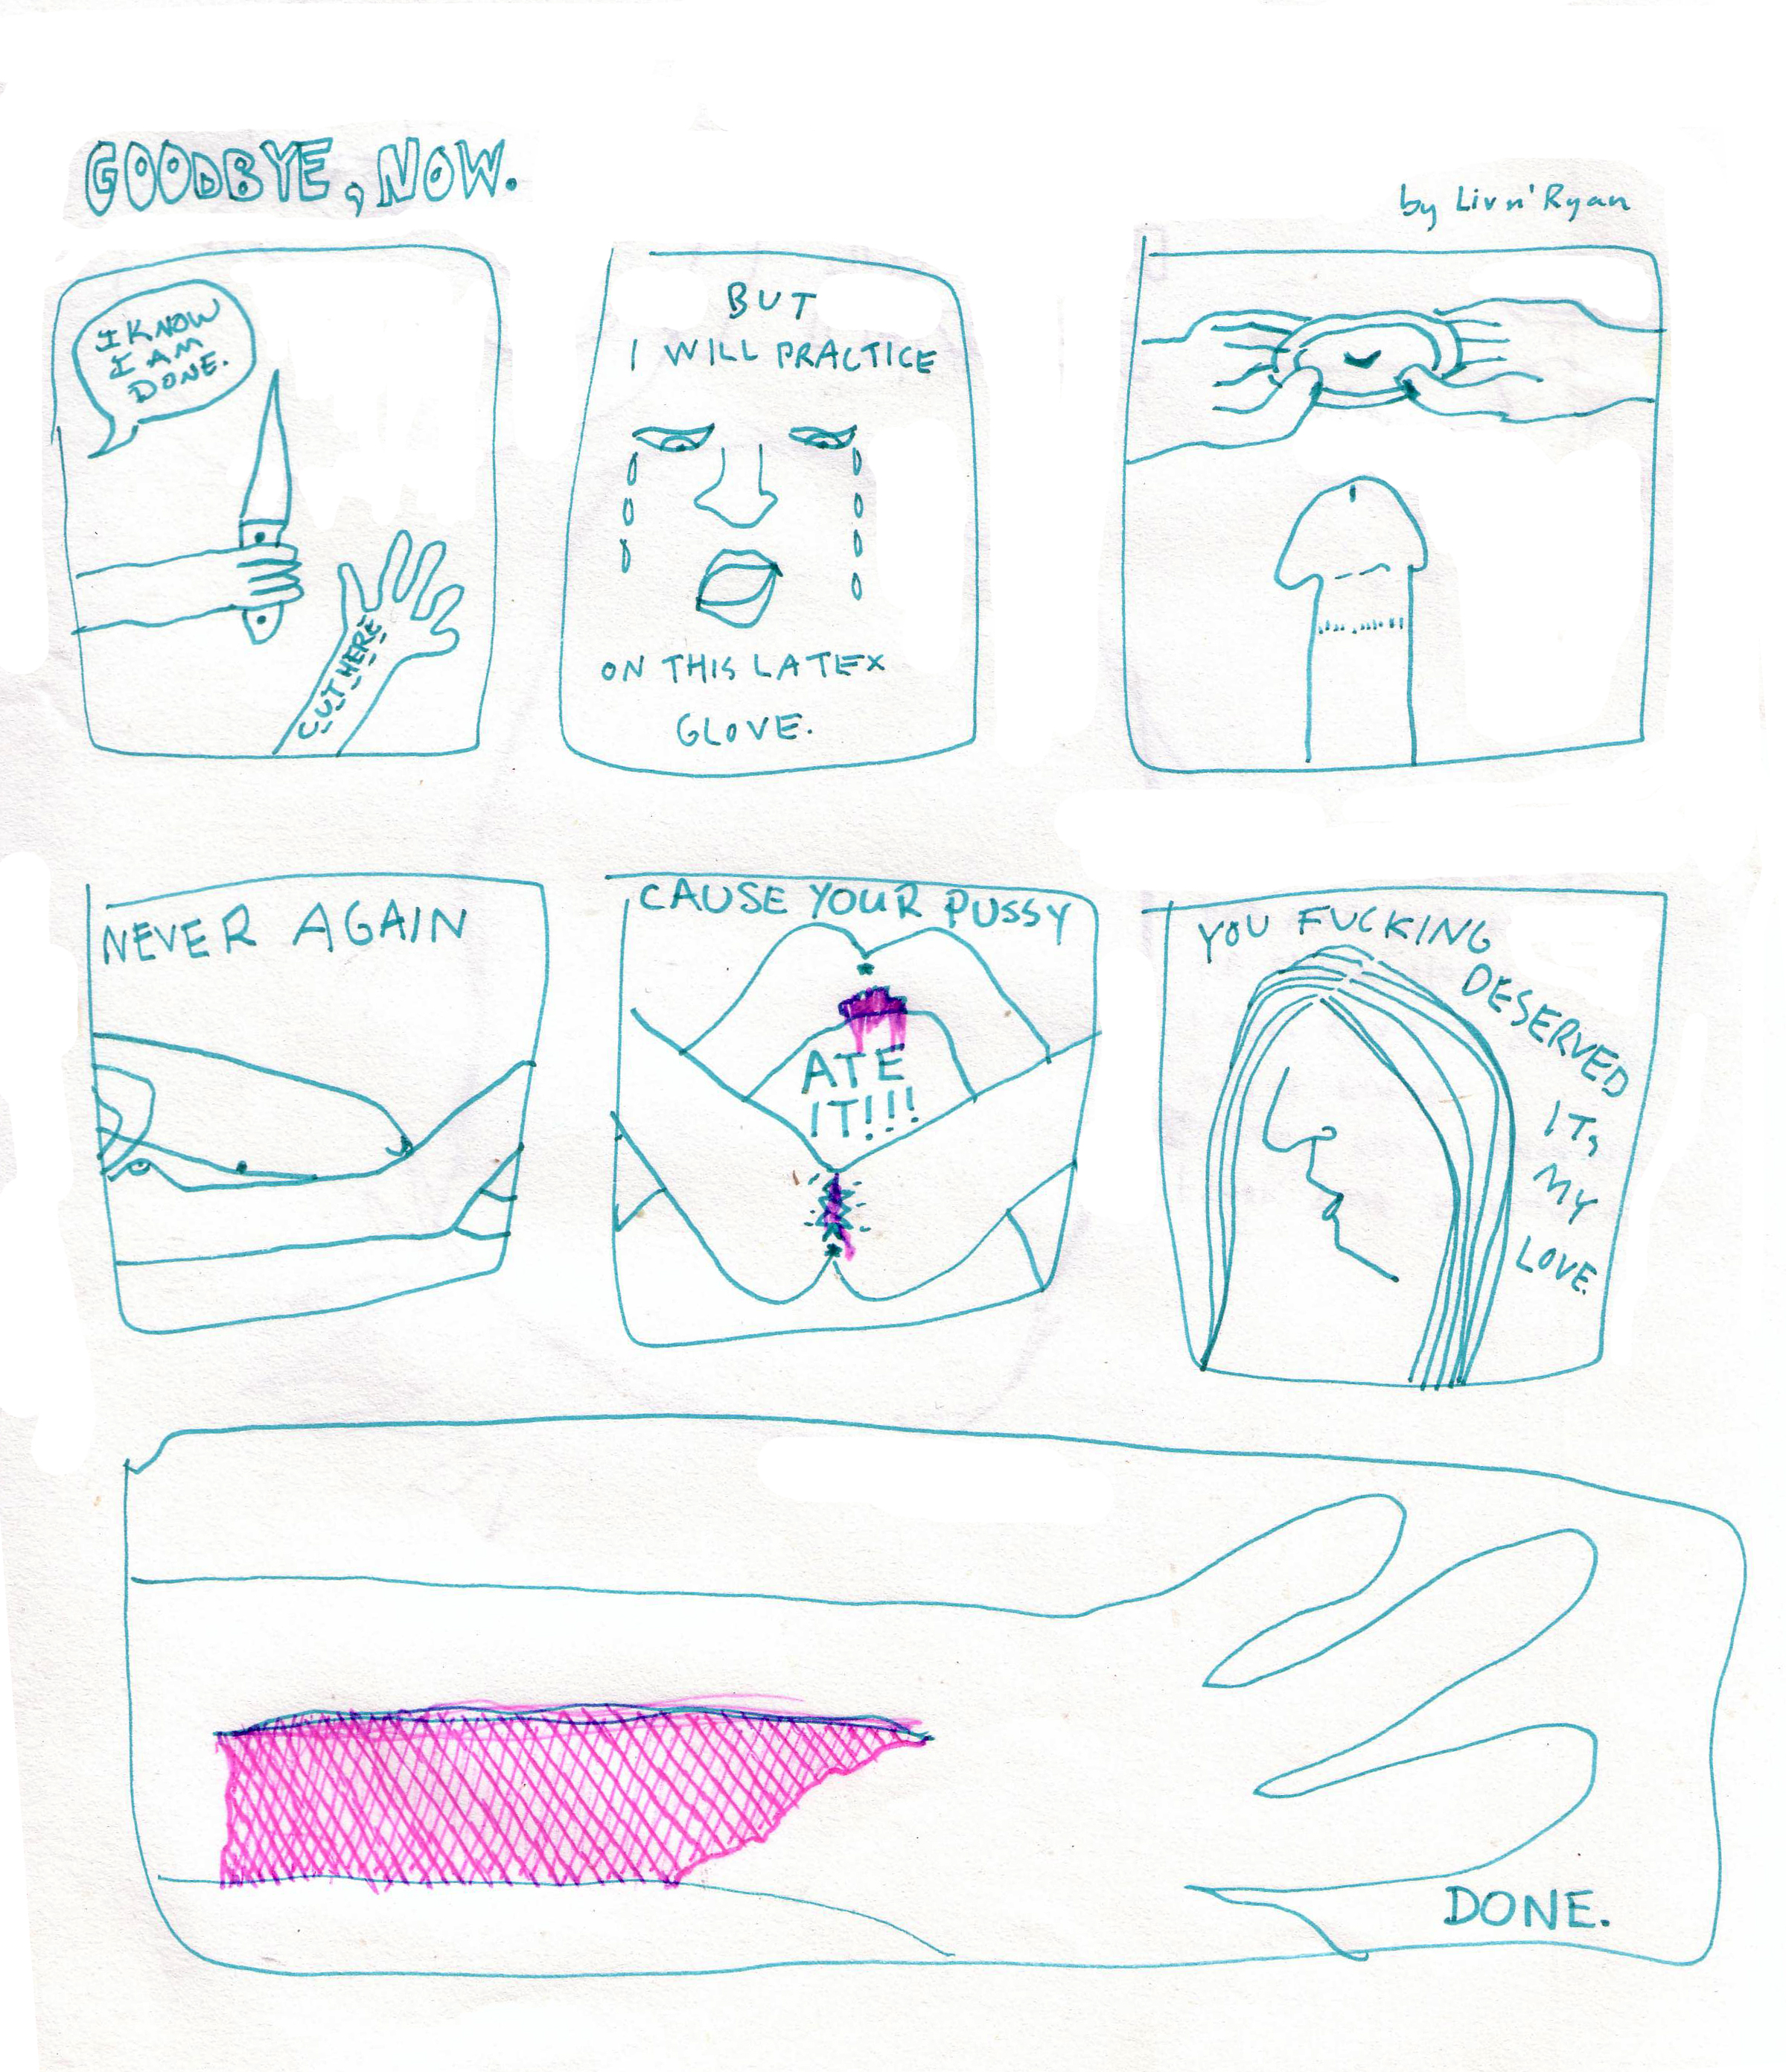 GOODBYE, NOW.
by Liv n' Ryan
I KNOW
I AM
DONE.
CUT HERE
BUT
I WILL PRACTICE
ON THIS LATEX
GLOVE.
NEVER AGAIN
CAUSE YOUR PUSSY
ATE
IT!!!
YOU FUCKING
DESERVED
IT,
MY
LOVE.
DONE.